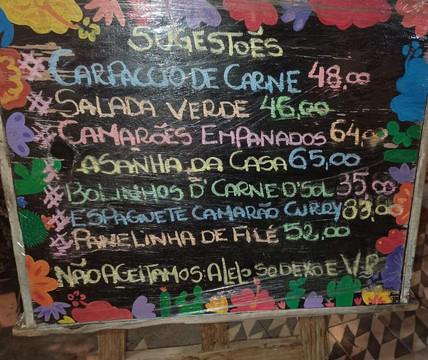 SUGESTOẼS
# CARPACCIO DE CARNE 48,00
# SALADA VERDE 46,00
# CAMARÕES EMPANADOS 64,00
# LASANHA DA CASA 65,00
# BOLINHOS D' CARNE D'SOL 35,00
# ESPAGUETE CAMARÃO CURRY 83,00
# PANELINHA DE FILÉ 52,00
NÃO ACEITAMOS: ALELO SODEXO E V.R